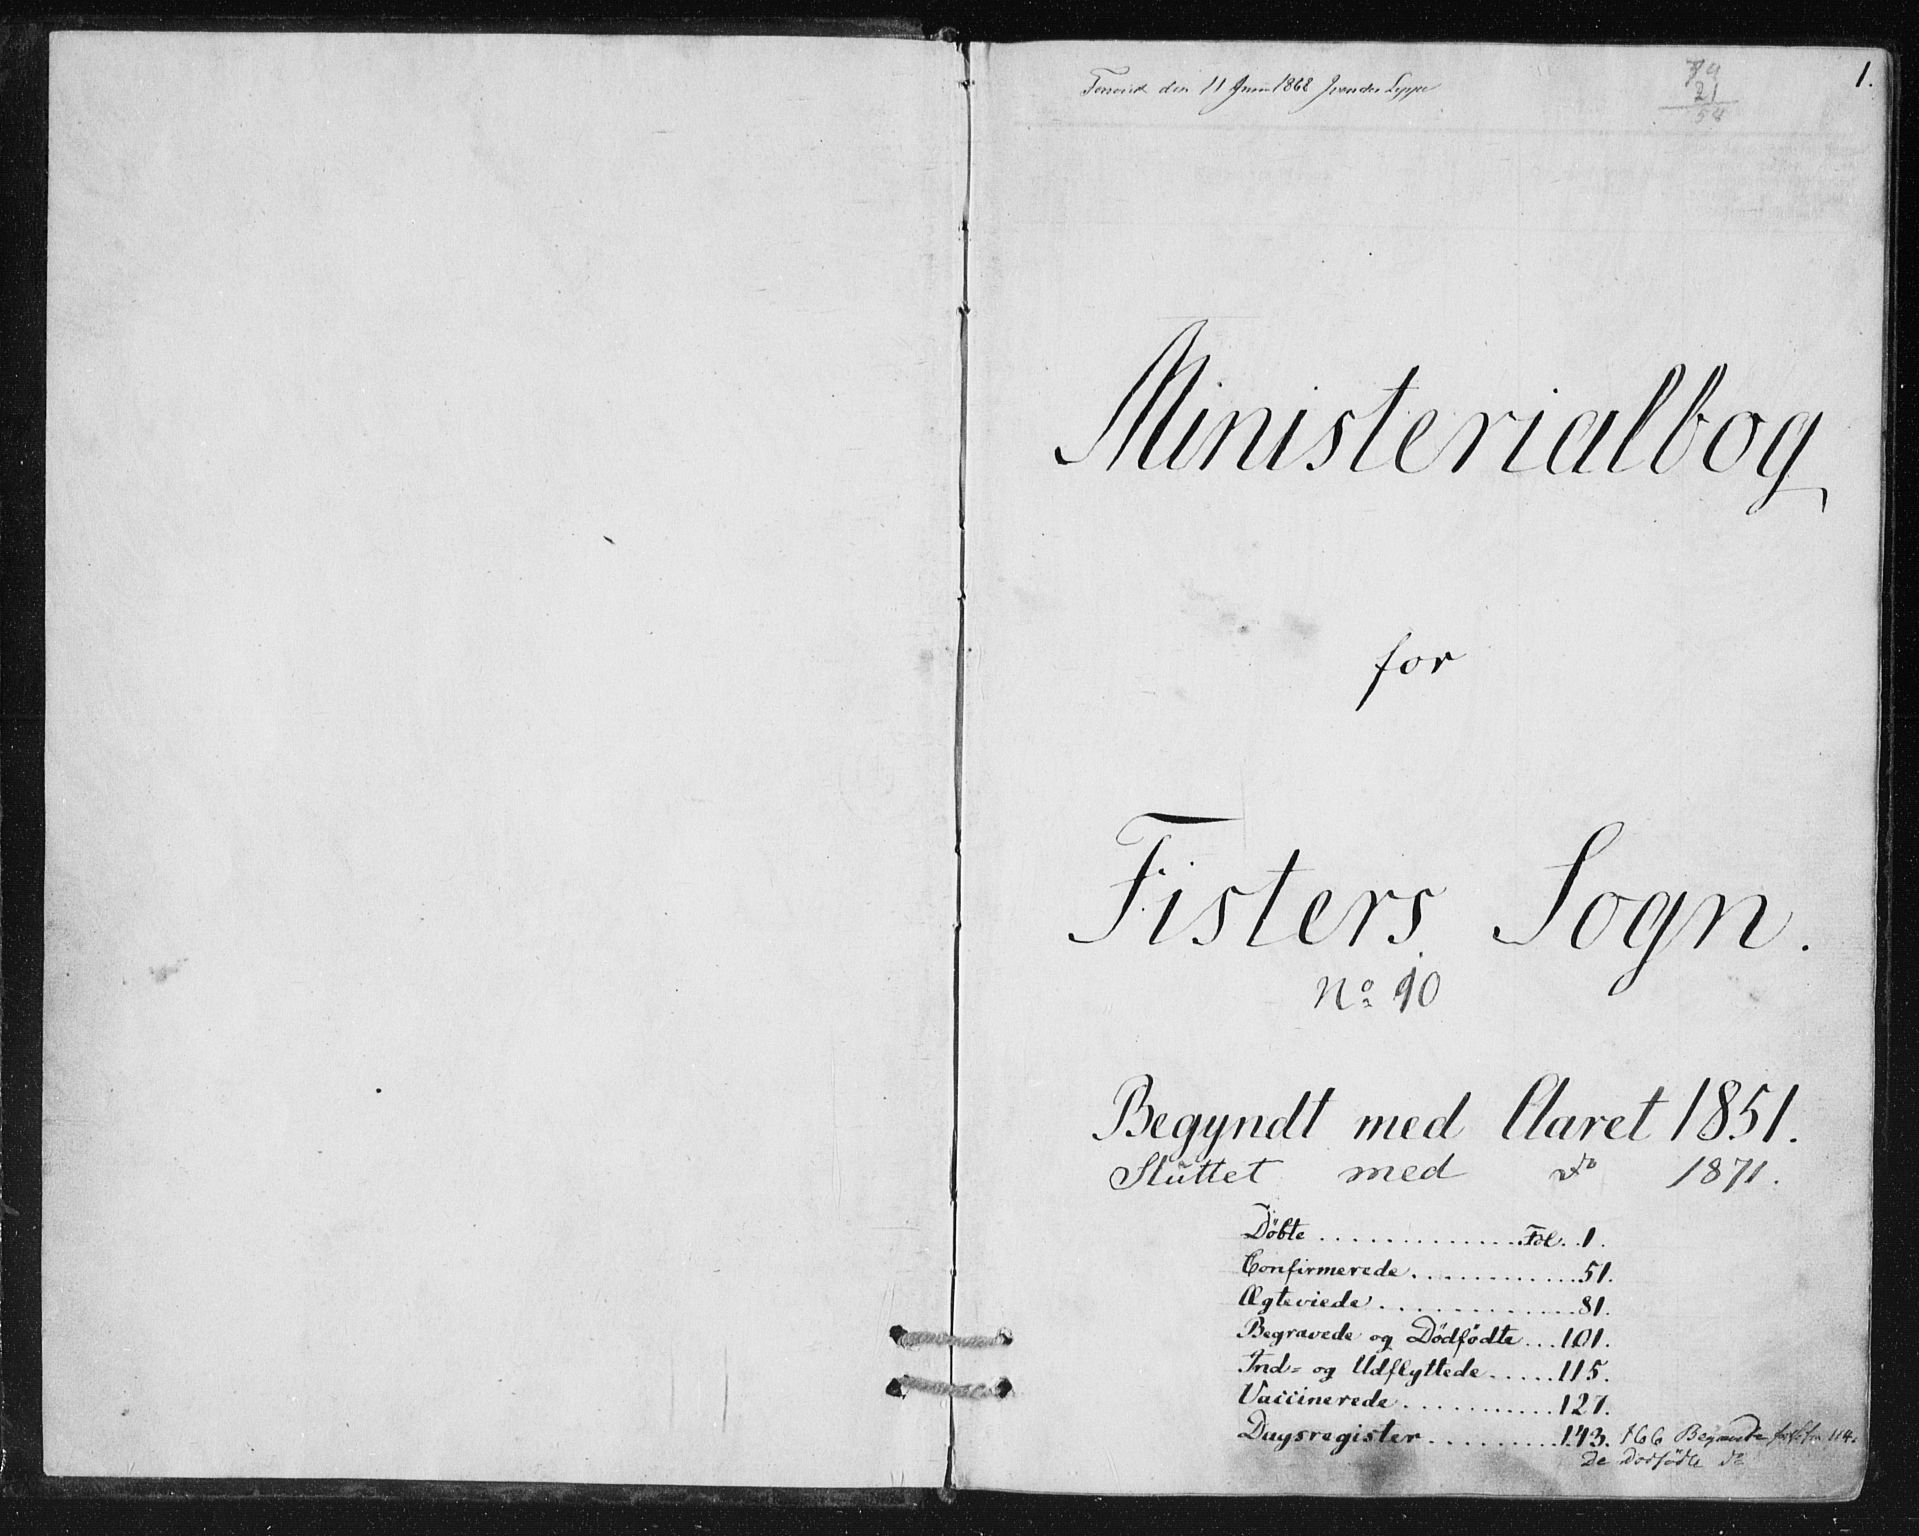 den 11 Juni 1868
74
21
54
1.
Ministerialbog
for
Fisters Sogn.
No 10
Begyndt med Aaret 1851.
Sluttet med do 1871.
Døbte .............. Fol. . 1.
Confirmerede ............ 51.
Ægteviede .............. 81.
Begravede og Dødfødte ... 101.
Ind= og Udflyttede ..... 115.
Vaccinerede ........... 127.
Dagsregister ......... 143. 166 114.
De Dødfødte do